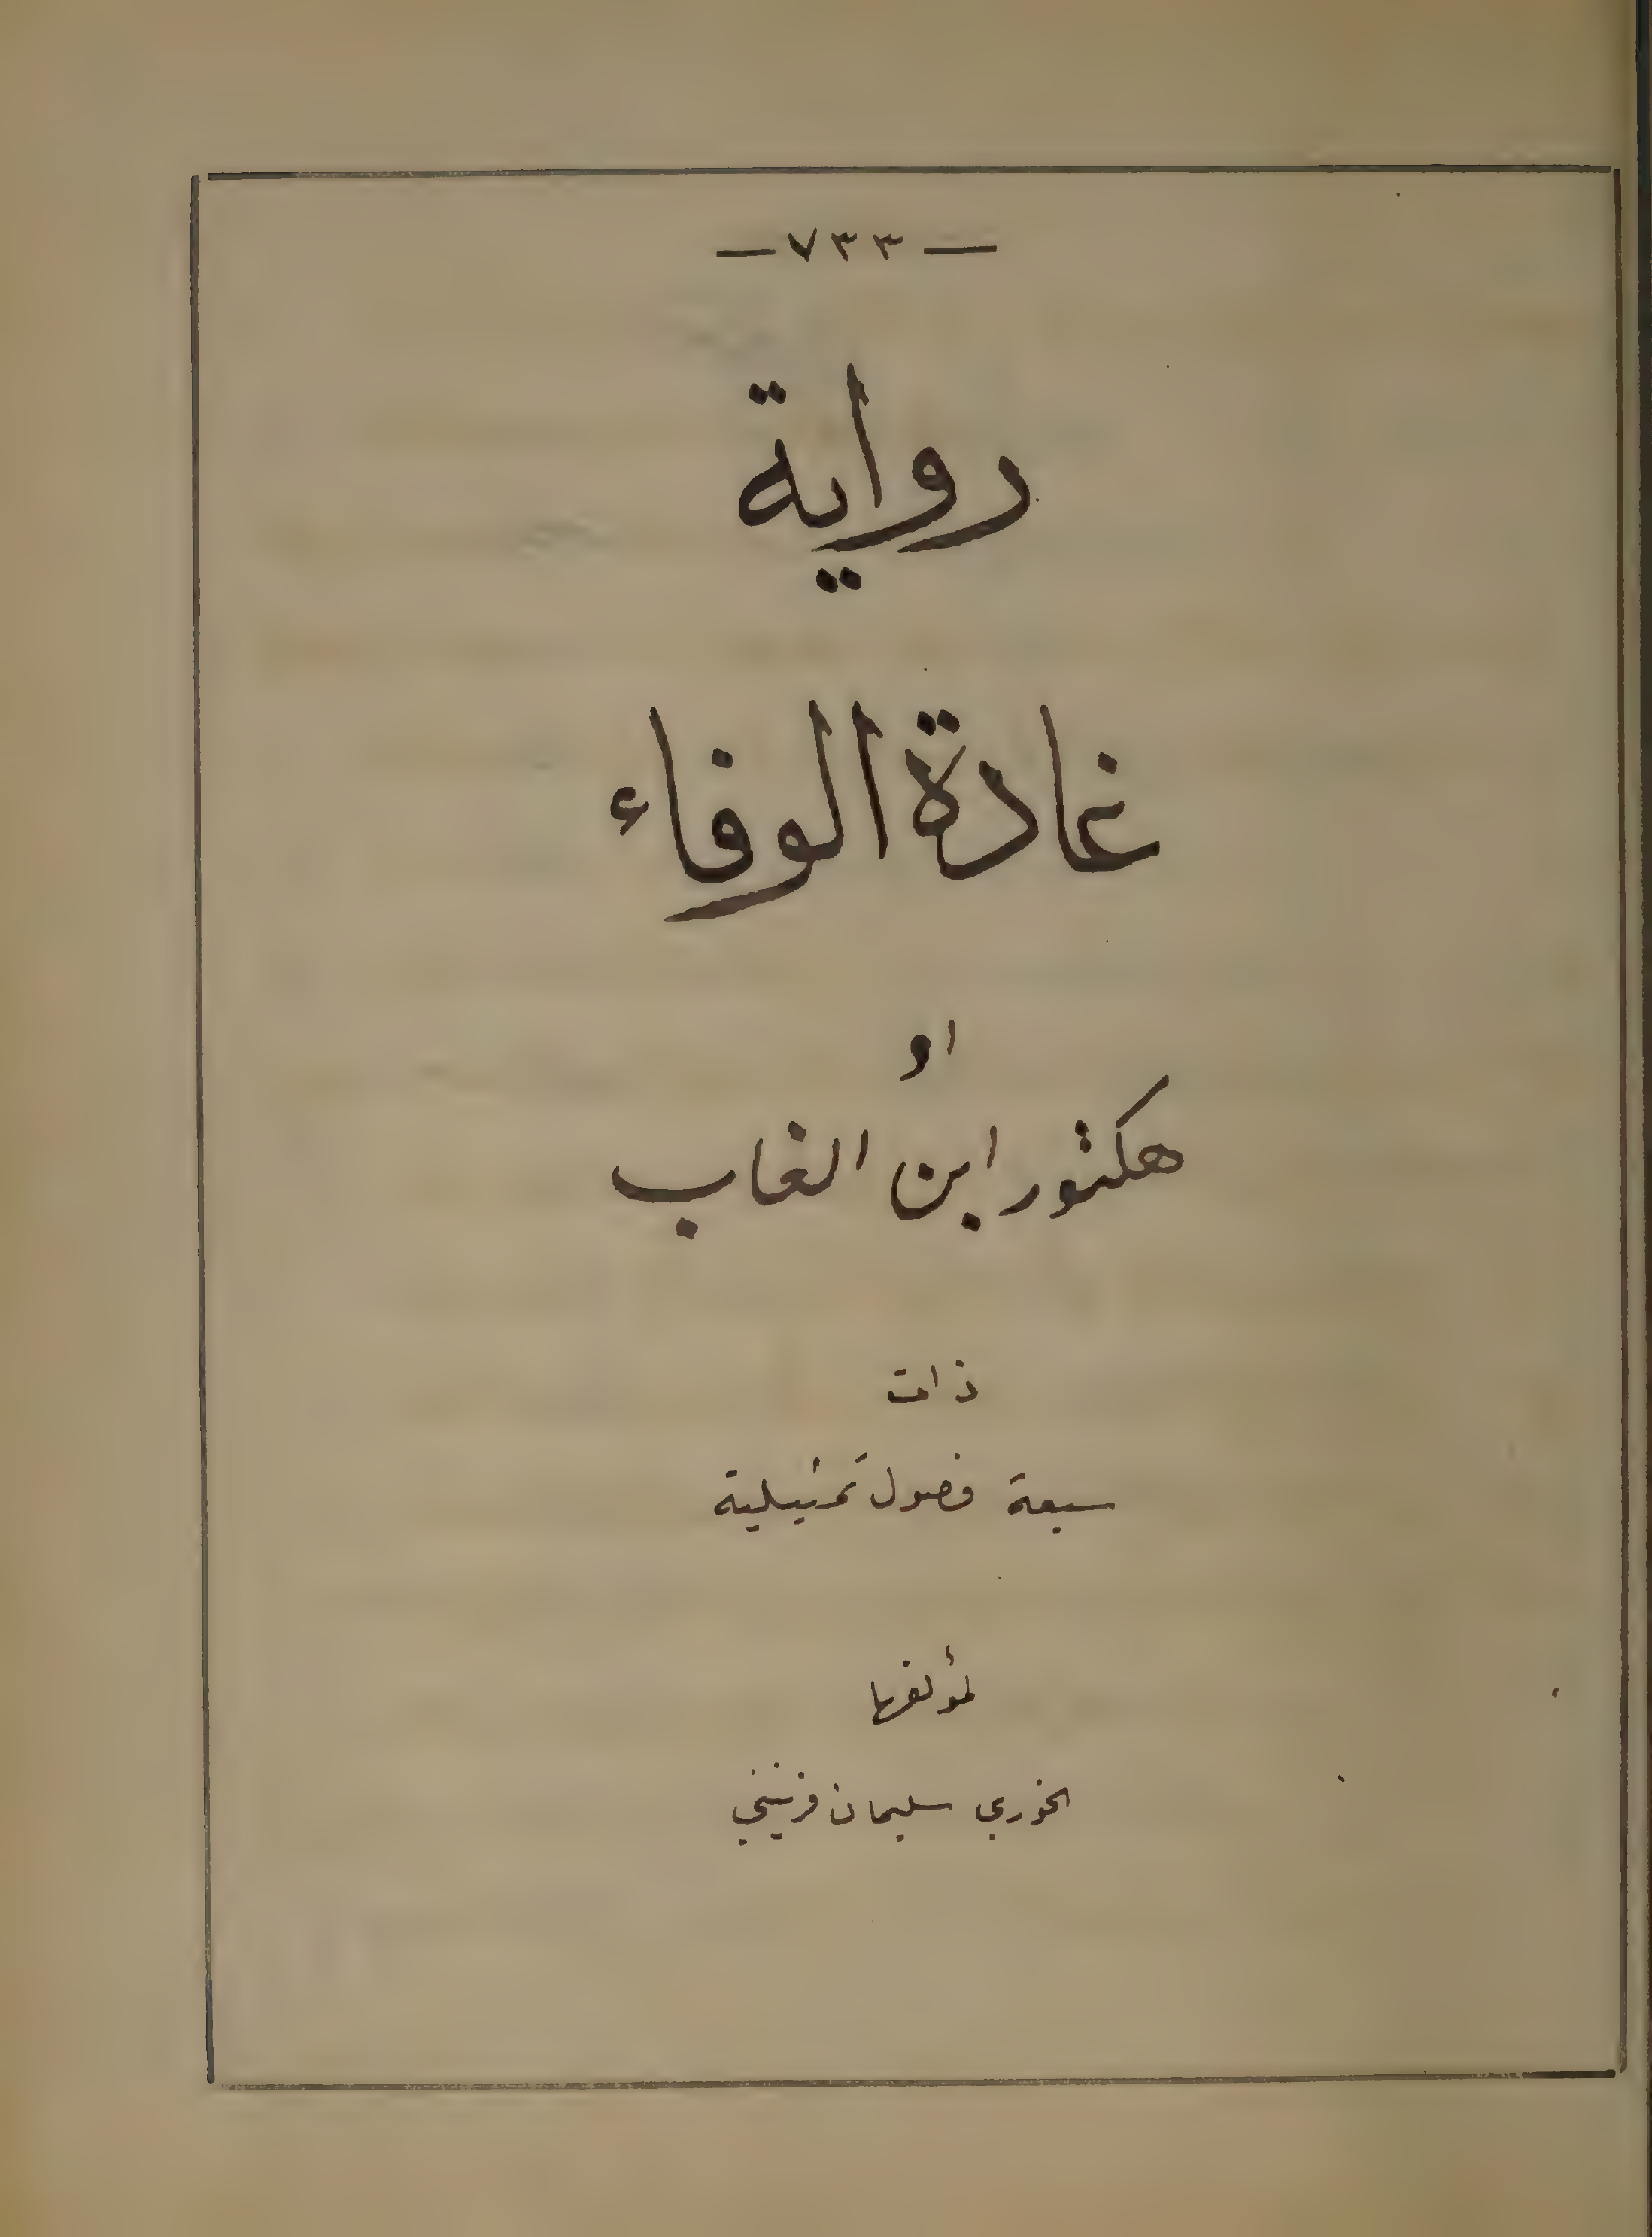 — ٧٣٣ —
رواية
غادة الوفاء
او
هكتور ابن الغاب
ذات
سبعة فصول تمثيلية
لمؤلفها
الخوري سليمان